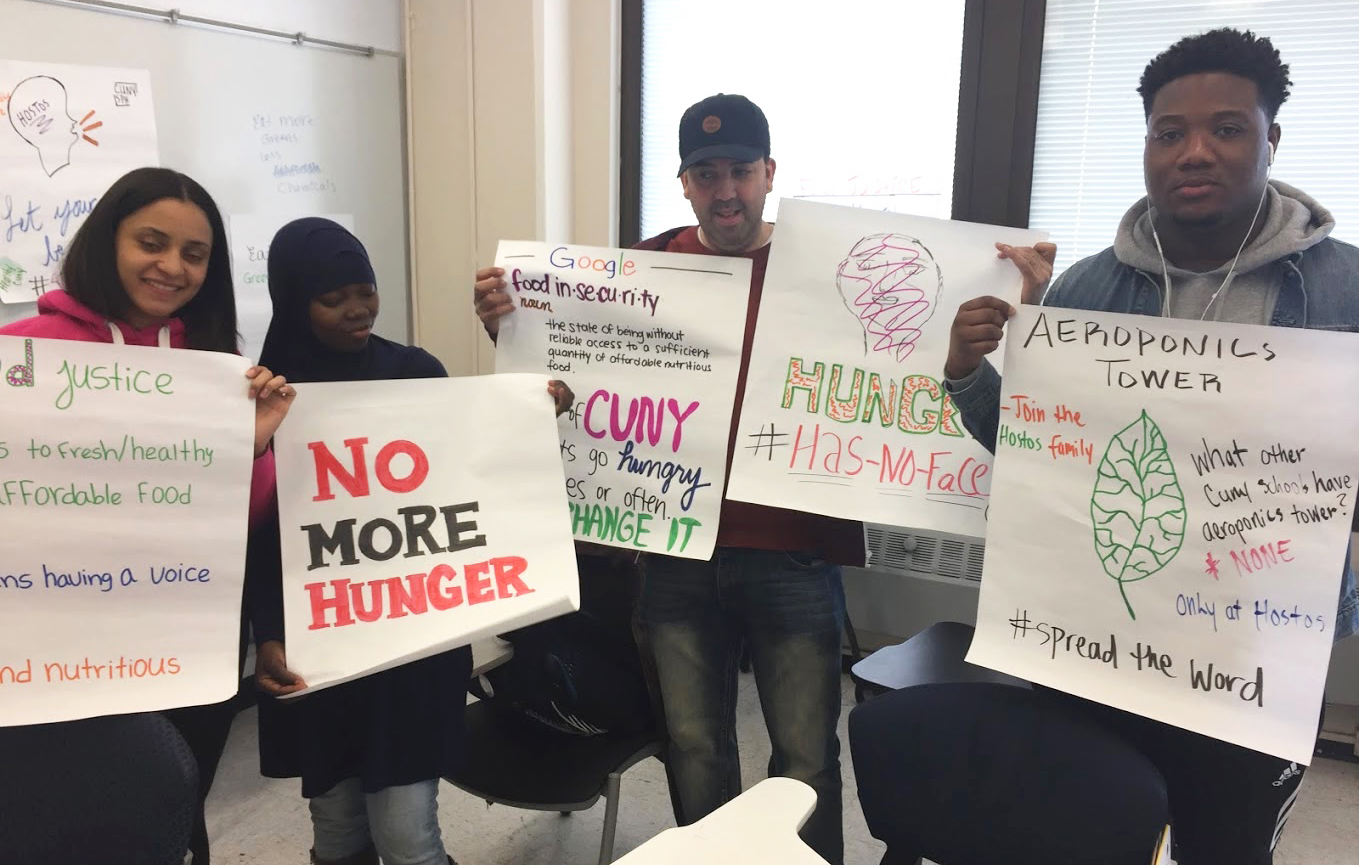 HOSTOS
CUNY
Let your
be
#
Eat more
Greens
less
Chemicals
Ea
Gree
d justice
s to Fresh/healthy
affordable Food
ns having a voice
nd nutritious
NO
MORE
HUNGER
Google
food in·se·cu·ri·ty
noun
the state of being without
reliable access to a sufficient
quantity of affordable nutritious
food.
of CUNY
ts go hungry
es or often.
CHANGE IT
HUNGE
#Has-No-Face
AEROPONICS
TOWER
-Join the
Hostos family
What other
Cuny schools have
aeroponics tower?
* NONE
only at Hostos
#spread the Word
adidas